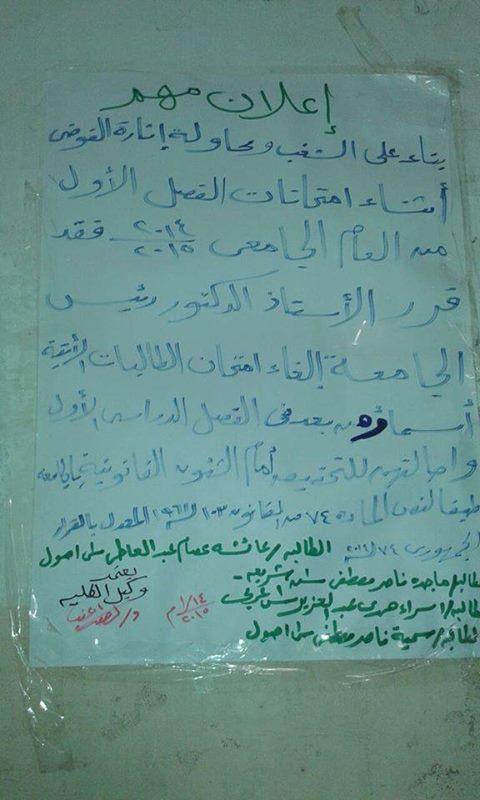 إعلان مهم
بناء على الشغب ومحاولة إثارة الفوضى
أثناء امتحانات الفصل الأول
من العام الجامعى ٢٠١٤/٢٠١٥ فقد
قرر الأستاذ الدكتور رئيس
الجامعة إلغاء امتحان الطالبات الآتية
أسمائهن بعد فى الفصل الدراسى الأول
وإحالتهن للتحقيق أمام الشئون القانونية بالجامعة
طبقا لنص المادة ٧٤ من القانون ١٠٣ لسنة ١٩٦١ المعدل بالقرار
الجمهورى
الطالبة/ عائشة عصام عبد العاطى اصول
الطالبة/ ماجده ناصر مصطفى شريعه
الطالبة/ اسراء حمدى عبد العزيز عربى
الطالبة/ سمية ناصر مصطفى اصول
يعتمد
وكيل الكلية
١/١٤
٢٠١٥ م